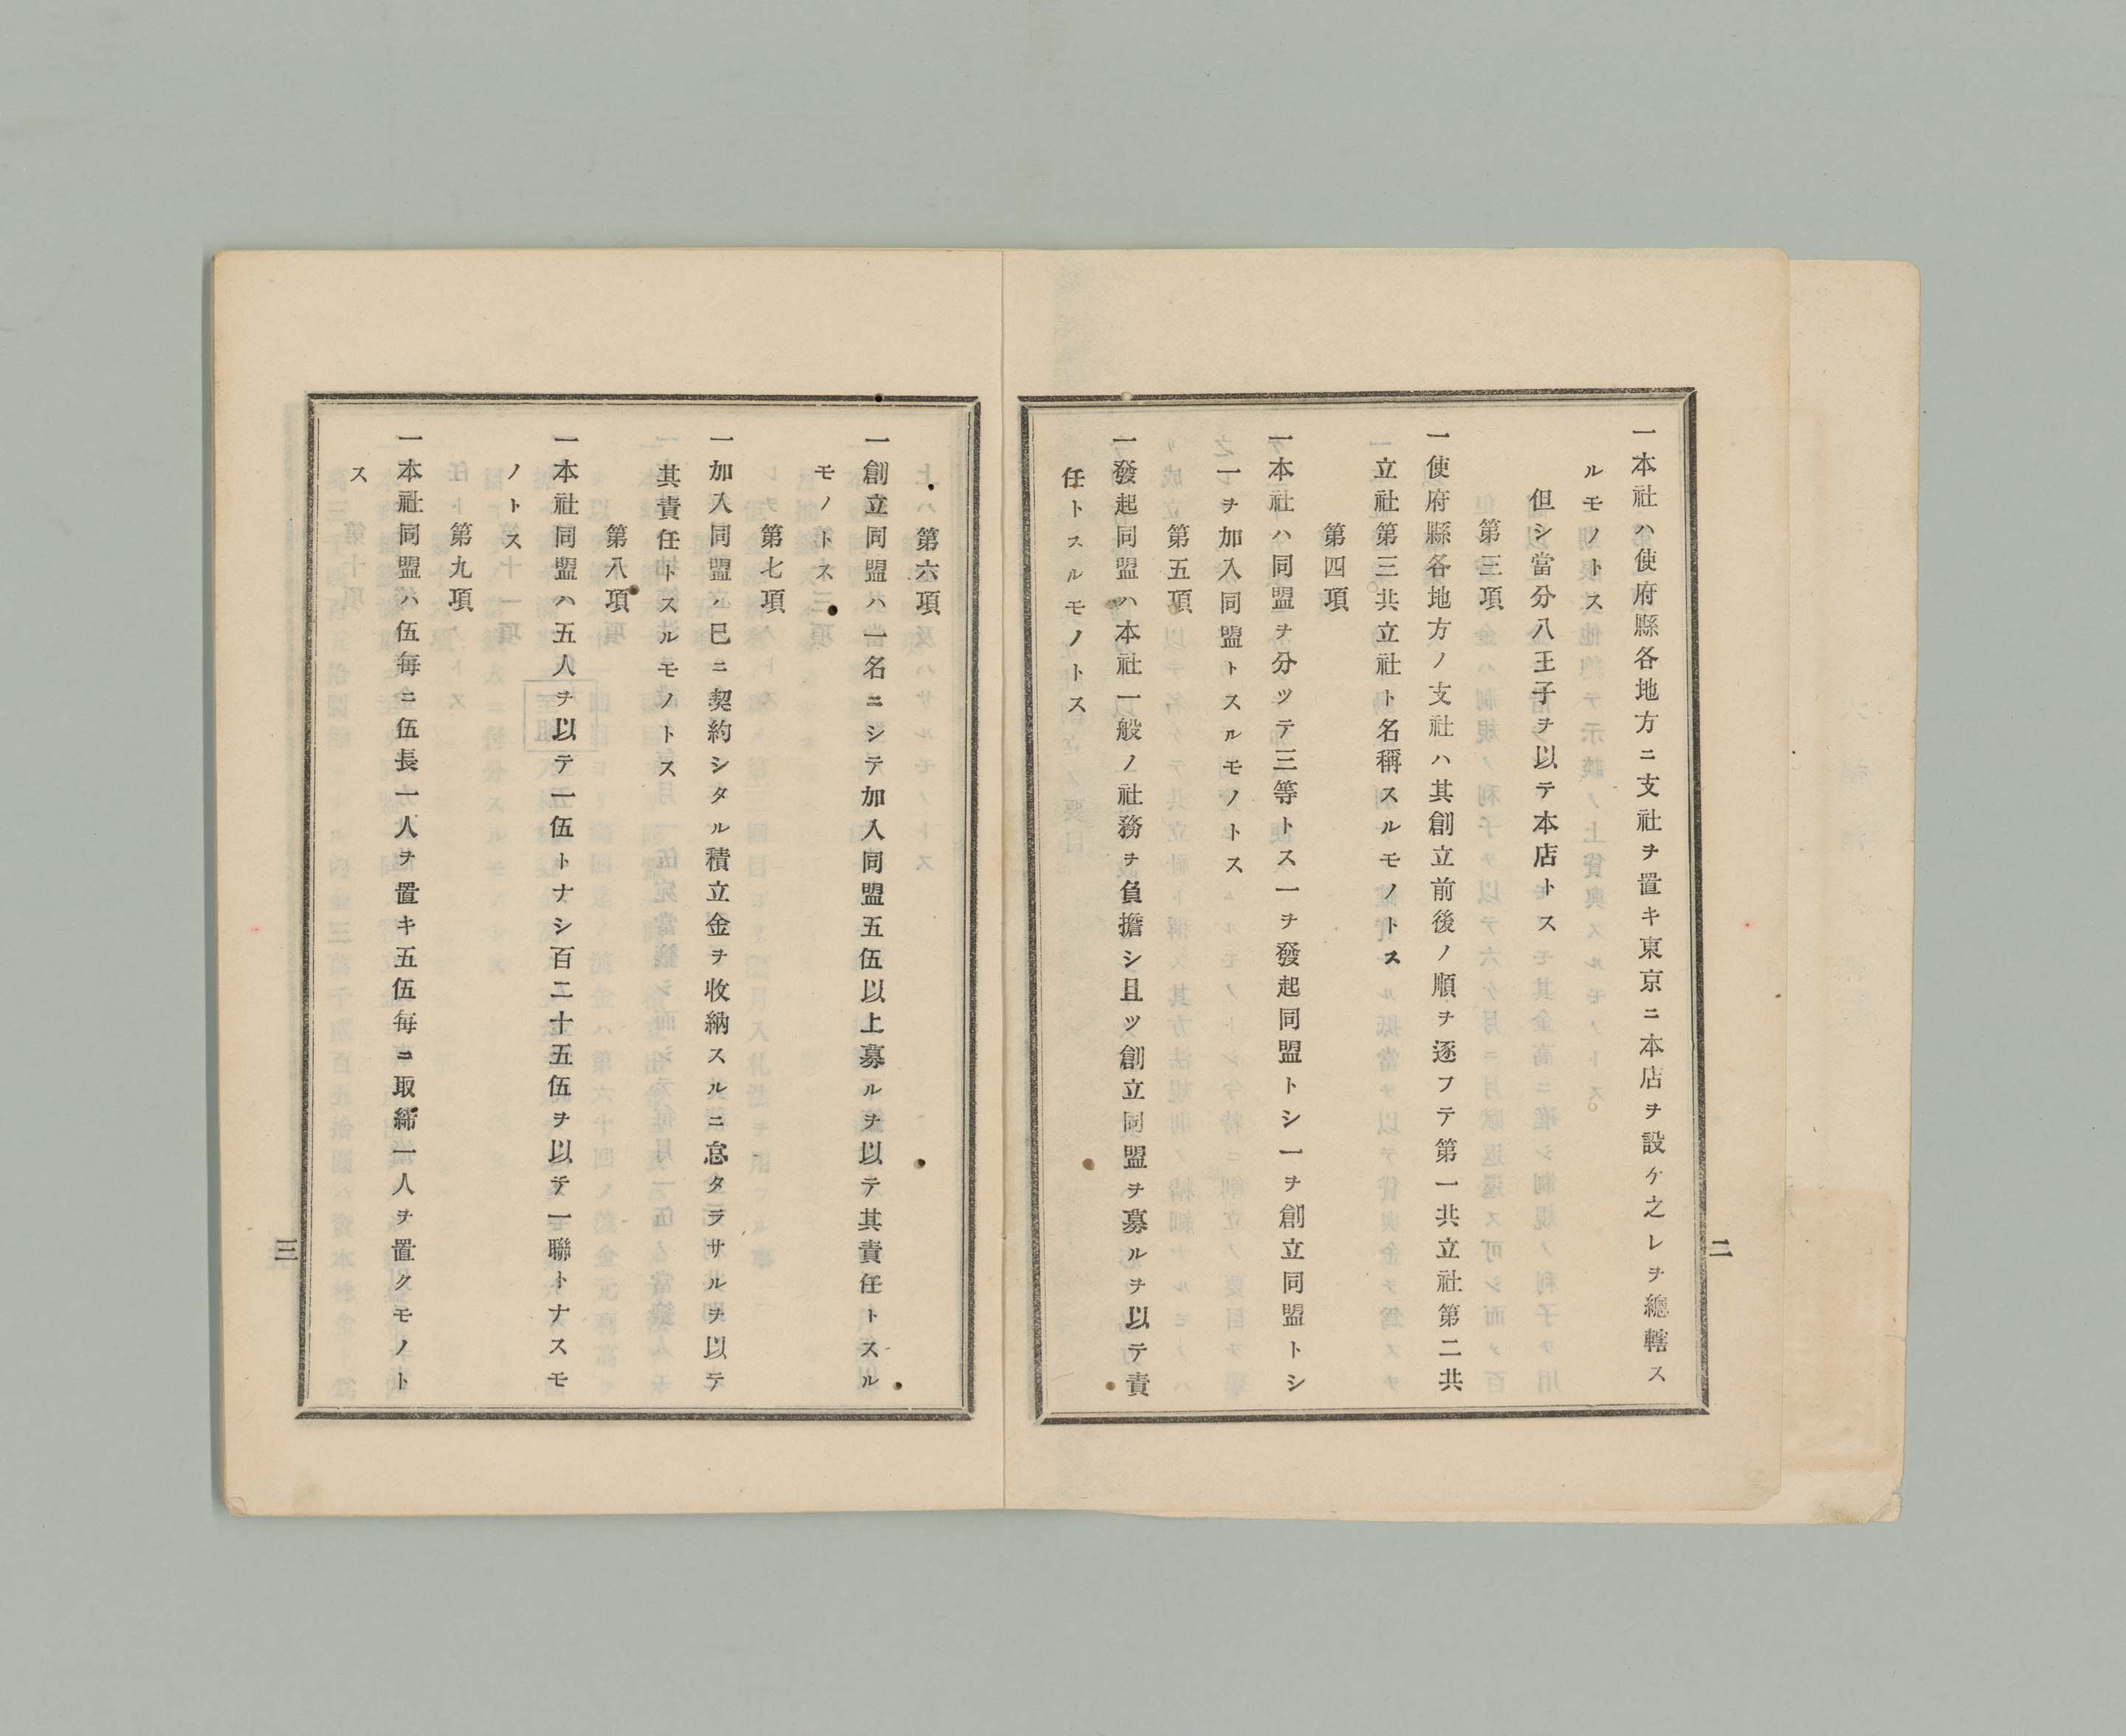 一本社ハ使府縣各地方ニ支社ヲ置キ東京ニ本店ヲ設ケ之レヲ總轄ス
ルモノトス
但シ當分八王子ヲ以テ本店トス
第三項
一使府縣各地方ノ支社ハ其創立前後ノ順ヲ逐フテ第一共立社第二共
立社第三共立社ト名稱スルモノトス
第四項
一本社ハ同盟ヲ分ツテ三等トス一ヲ發起同盟トシ一ヲ創立同盟トシ
一ヲ加入同盟トスルモノトス
第五項
一發起同盟ハ本社一般ノ社務ヲ負擔シ且ツ創立同盟ヲ募ルヲ以テ責
任トスルモノトス
二
第六項
一創立同盟ハ一名ニシテ加入同盟五伍以上募ルヲ以テ其責任トスル
モノトス
第七項
一加入同盟ハ已ニ契約シタル積立金ヲ收納スルニ怠タラサルヲ以テ
其責任トスルモノトス
第八項
一本社同盟ハ五人ヲ以テ一伍トナシ百二十五伍ヲ以テ一聯トナスモ
ノトス
第九項
一本社同盟ハ伍每ニ伍長一人ヲ置キ五伍每ニ取締一人ヲ置クモノト
ス
三